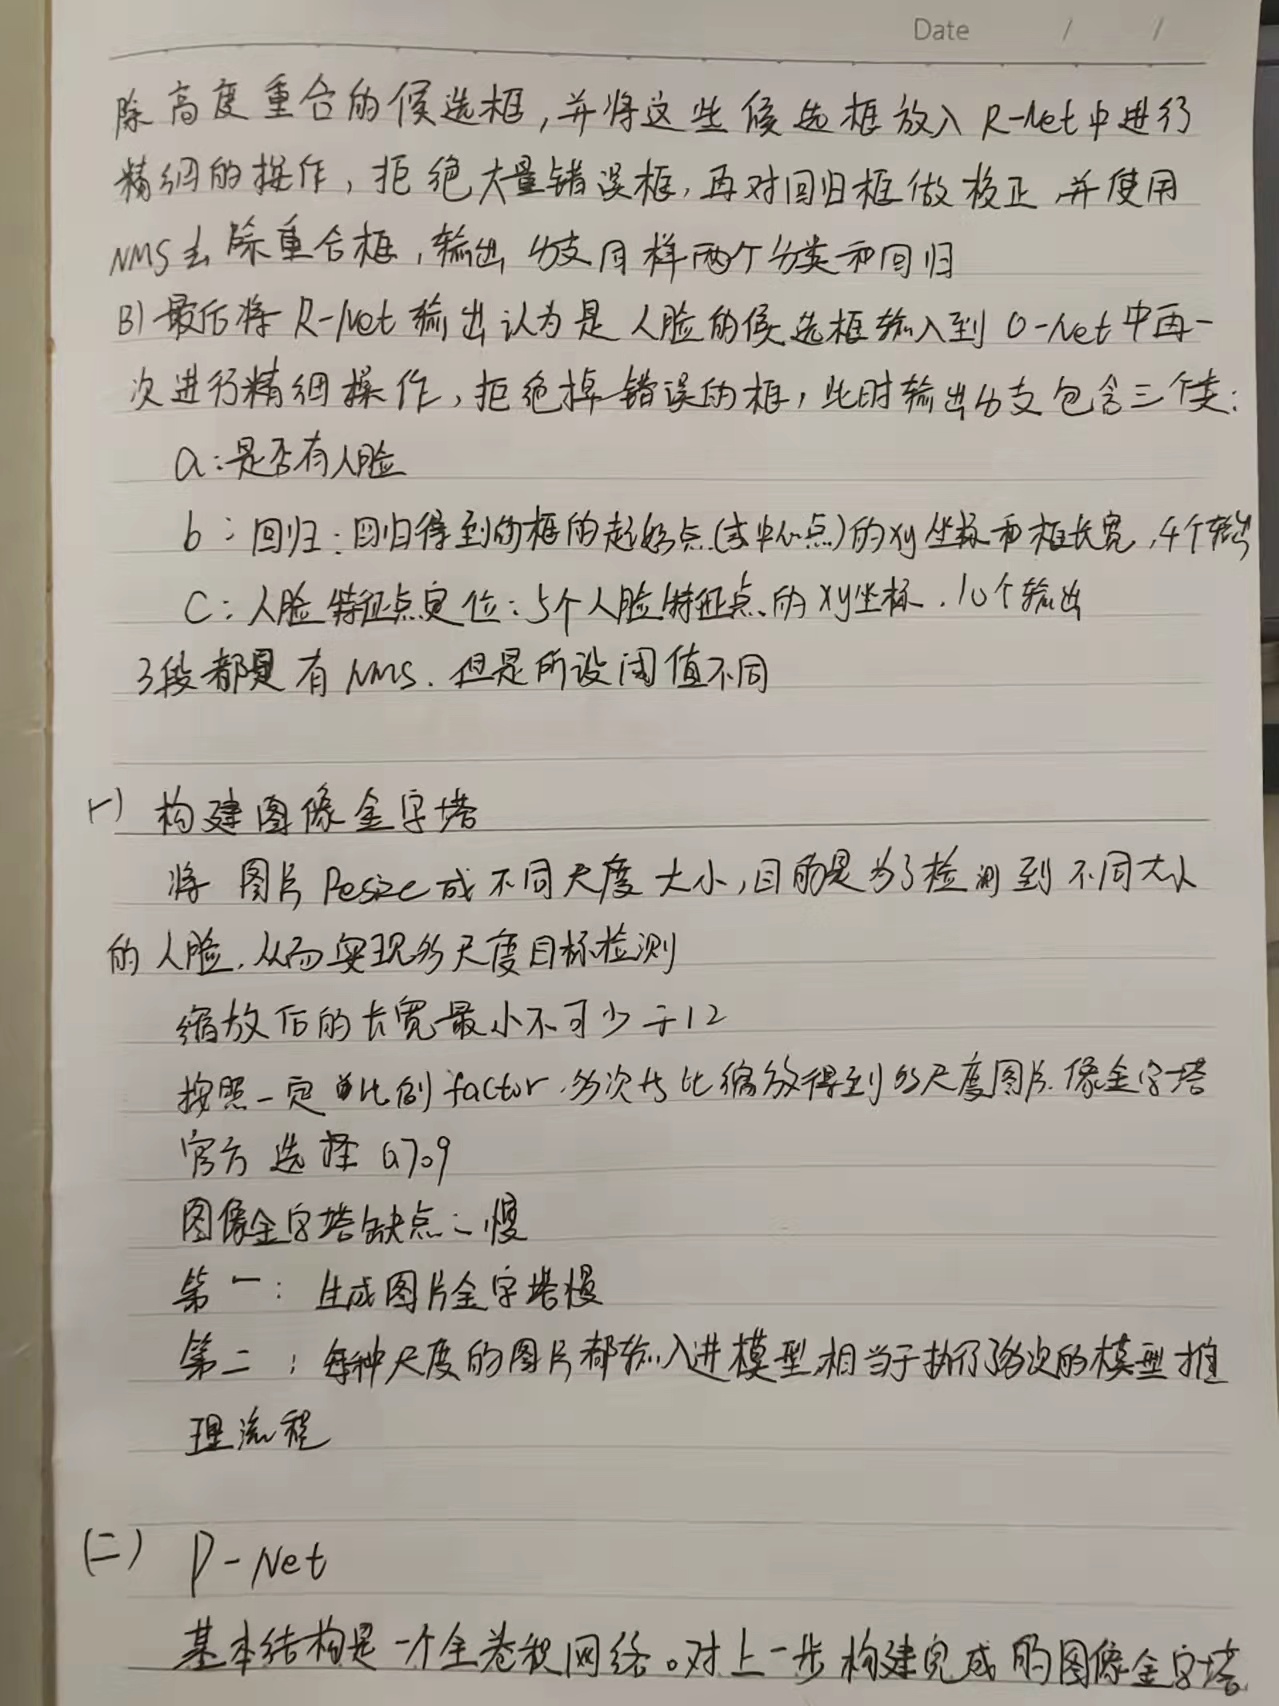 Date / /
除高度重合的候选框,并将这些候选框放入R-Net中进行
精细的操作,拒绝大量错误框,再对回归框做校正,并使用
NMS去除重合框,输出分支同样两个分类和回归
B)最后将R-Net输出认为是人脸的候选框输入到O-Net中再一
次进行精细操作,拒绝掉错误的框,此时输出分支包含三个类:
a:是否有人脸
b:回归:回归得到的框的起始点(或中心点)的xy坐标和框长宽,4个输出
C:人脸特征点定位:5个人脸特征点的xy坐标.10个输出
3段都是有NMS.但是所设阈值不同
一)构建图像金字塔
将图片Resize成不同尺度大小,目的是为了检测到不同大小
的人脸.从而实现多尺度目标检测
缩放后的长宽最小不可少于12
按照一定比例factor.多次按比缩放得到多尺度图片.像金字塔
官方选择0.709
图像金字塔缺点:慢
第一:生成图片金字塔慢
第二:每种尺度的图片都输入进模型,相当于执行了多次的模型推
理流程
(二)P-Net
基本结构是一个全卷积网络。对上一步构建完成的图像金字塔